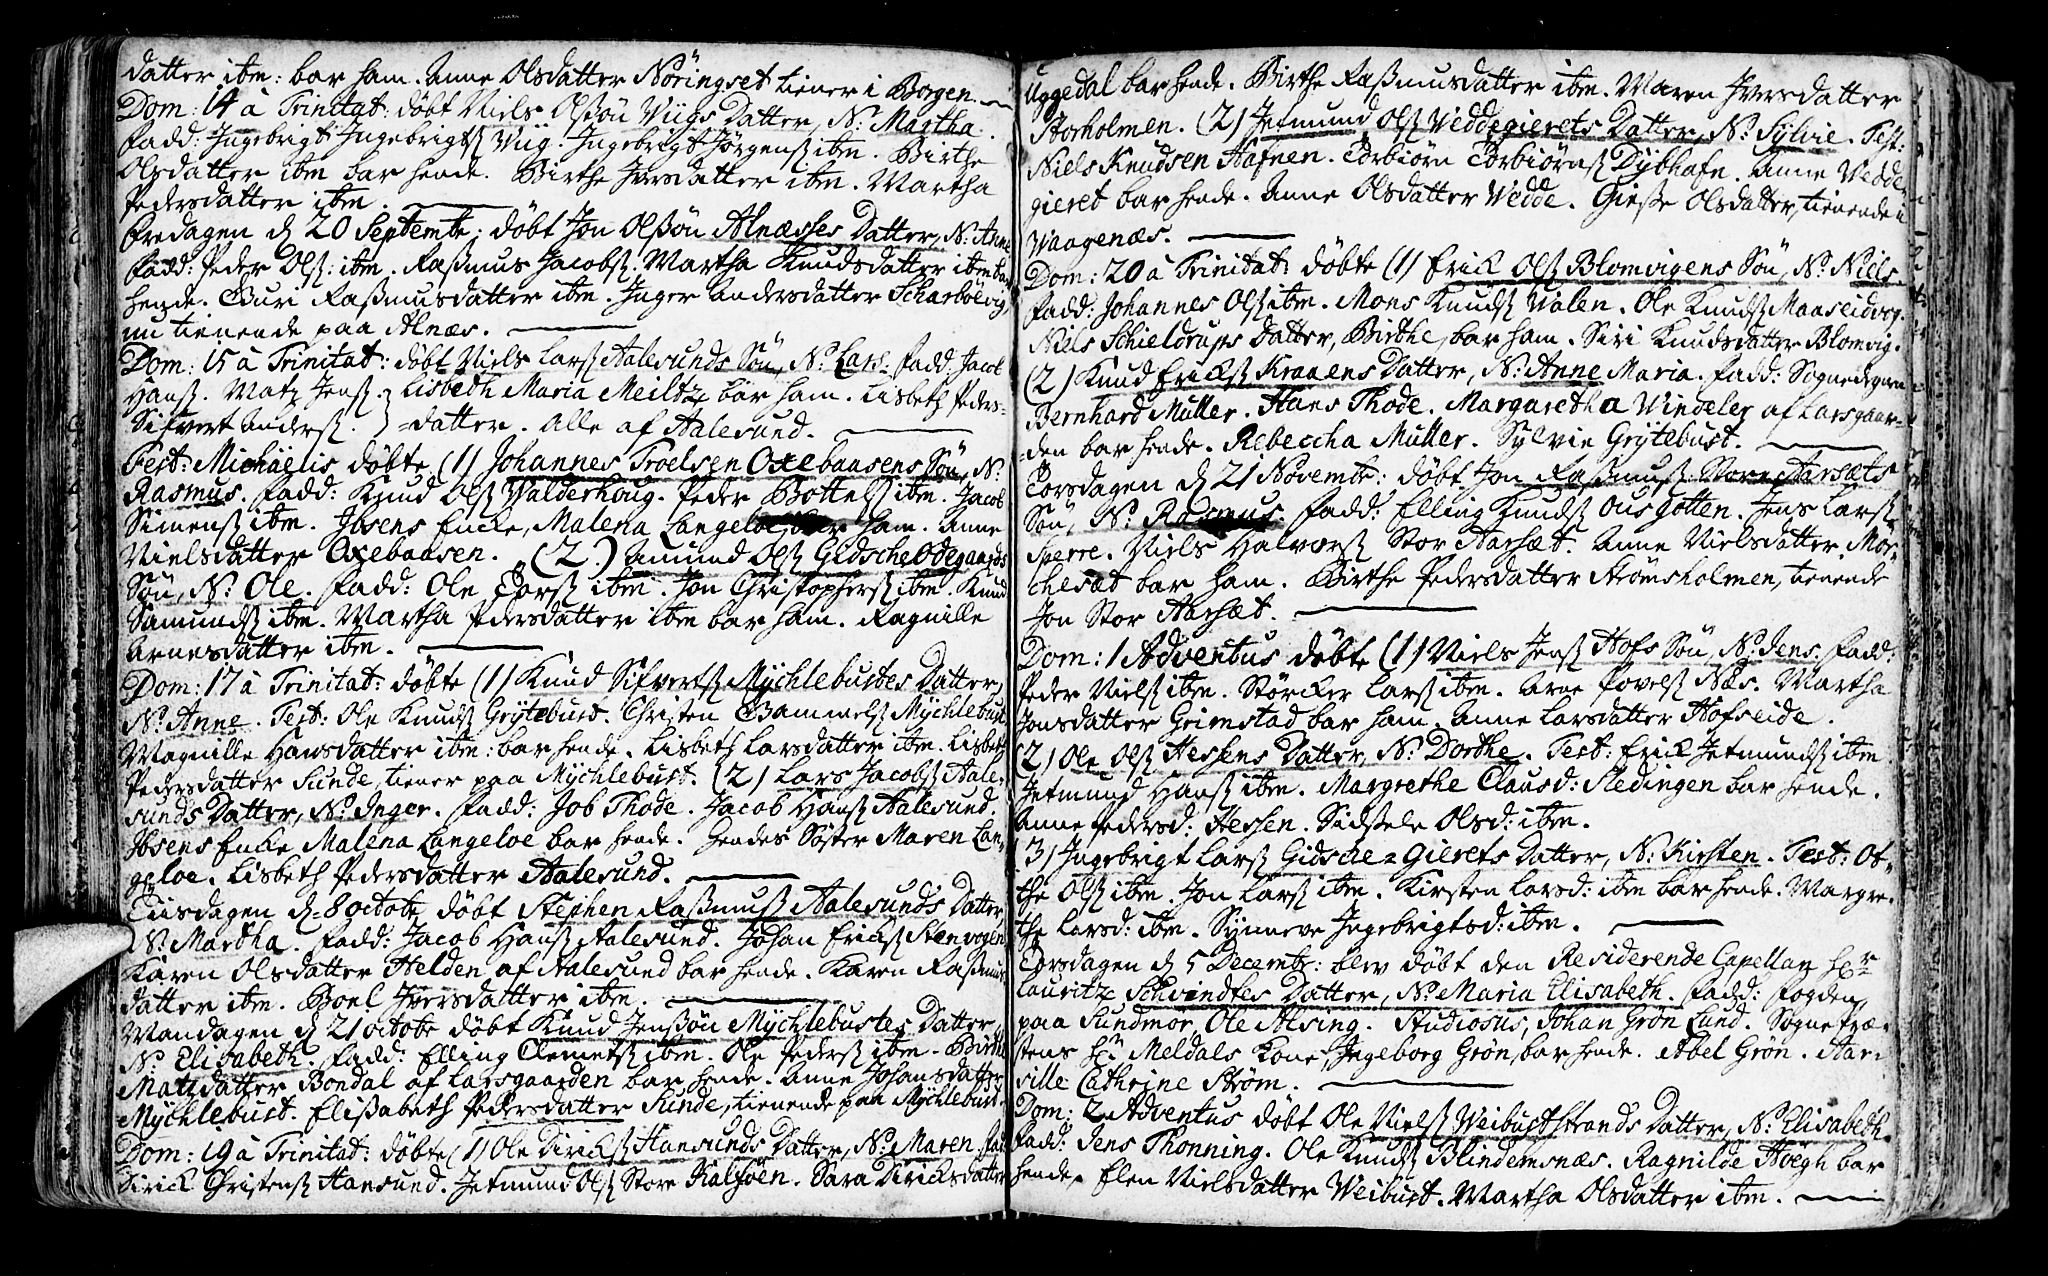 datter ibm: bar ham. Anne Olsdatter Nöringset tiener i Borgen.
Dom: 14 à Trinitat: döbt Niels Olßön Wiigs Datter, N: Martha.
Fadd: Ingebrigt Ingebrigtß Wiig. Ingebrigt Jörgensß ibm. Birthe
Olsdatter ibm bar hende. Birthe Iversdatter ibm. Martha
Pedersdatter ibm.
Fredagen d 20 Septembr: döbt Jon Olßön Alnæsses Datter, N: Anne
Fadd: Peder Olß: ibm. Raßmus Jacobß. Martha Knudsdatter ibm bar
hende. Guri Raßmusdatter ibm. Inger Andersdatter Scharbövig,
nu tienende paa Alnæs.
Dom: 15 à Trinitat: döbt Niels Larß Aalesunds Sön, N: Lars. Fadd: Jacob
Hansß. Matz Jensß. } Lisbeth Maria Meiltz bar ham. Lisbeth Peders-
Sifvert Andersß. } =datter. Alle af Aalesund.
Fest: Michäelis döbte (1) Johannes Troelsen Oxebaasens Sön, N:
Rasmus. Fadd: Knud Olß Walderhoug. Peder Bottelß ibm. Jacob
Simensß ibm. Ibsens Encke, Malena Langeloe, bar ham. Anne
Nielsdatter Oxebaasen. (2) Amund Olß Gidsche Ödegaards
Sön, N: Ole. Fadd: Ole Torß ibm. Jon Christophersß ibm. Knud
Samundß ibm. Martha Pedersdatter ibm bar ham. Ragnille
Arnesdatter ibm.
Dom: 17 à Trinitat: döbte (1) Knud Sifvertß Mychlebustes Datter,
N: Anne. Test: Ole Knudß Grytebust. Christen Gammelß Mychlebust
Magnille Hansdatter ibm: bar hende. Lisbeth Larsdatter ibm. Lisbeth
Pedersdatter Sunde, tiener paa Mychlebust. (2) Lars Jacobß Aale-
sunds Datter, N: Inger. Fadd: Job Thode. Jacob Hansß Aalesund.
Ibsens Encke Malena Langeloe bar hende. Hendes Söster Maren Lan-
geloe. Lisbeth Pedersdatter Aalesund.
Tiisdagen d 8 octobr döbt Stephen Raßmusß Aalesunds Datter
N: Martha. Fadd: Jacob Hansß Aalesund. Johan Erichß Stenvogen
Karen Olsdatter Helden af Aalesund bar hende. Karen Raßmus
datter ibm. Boel Iversdatter ibm.
Mandagen d 21 octobr döbt Knud Jenßön Mychlebustes Datter
N: Elisabeth. Fadd: Elling Clemetß ibm. Ole Pedersß ibm. Birthe
Matzdatter Bondal af Larsgaarden bar hende. Anne Johansdatter
Mychlebust. Elißabeth Pedersdatter Sunde, tienende paa Mychlebust.
Dom: 19 à Trinitat: döbte (1) Ole Dirichß Hansunds Datter, N: Maren. Fad
Dirich Christensß Hansund. Jetmund Olß Store Kalfsöen. Sara Diricksdatter
Uggedal bar hende. Birthe Raßmusdatter ibm. Maren Iversdatter
Storholmen. (2) Jetmund Olß Weddegierets Datter, N: Sylvie. Test:
Niels Knudsen Hafnen. Torbiörn Torbiörnß Dybhafn. Anne Wedde-
gieret bar hende. Anne Olsdatter Wedde. Gieße Olsdatter, tienende i
Waagenæs.
Dom: 20 à Trinitat: döbte (1) Erick Olß Blomvigens Sön, N: Niels
Fadd: Johannes Olß ibm. Mons Knudß Valen. Ole Knudß Maaseidvog.
Niels Schieldrups Datter, Birthe, bar ham. Siri Knudsdatter Blomvig.
(2) Knud Erickß Kraaens Datter, N: Anne Maria. Fadd: Sognedegnen
Bernhard Müller. Hans Thode. Margaretha Windeler af Larsgaar-
=den bar hende. Rebeccha Müller. Sylvie Grytebust.
Torsdagen d 21 Novembr: döbt Jon Raßmusß Store Aarsæts
Sön, N: Rasmus. Fadd: Elling Knudß Ousgotten. Jens Larsß
Sperre. Niels Halvorß Stor Aarsæt. Anne Nielsdatter Mör-
chesæt bar ham. Birthe Pedersdatter Strömsholmen, tienende
Jon Stor Aarsæt.
Dom: 1 Adventus döbte (1) Niels Jensß Hofs Sön, N: Jens. Fadd:
Peder Nielß ibm. Störcker Larß ibm. Arne Povelß Næs. Martha
Jonsdatter Grimstad bar ham. Anne Larsdatter Hofseide.
(2) Ole Olß Hessens Datter, N: Dorthe. Test: Erick Jetmundß ibm.
Jetmund Hansß ibm. Margrethe Clausd: Sledingen bar hende.
Anne Pedersd: Hessen. Sidßele Olsd: ibm.
(3) Ingebrigt Larß Gidsche=Gierets Datter, N: Kirsten. Test: Ot-
the Olß ibm. Jon Larß ibm. Kirsten Larsd: ibm bar hende. Margre-
the Larsd: ibm. Synneve Ingebrigtsd: ibm.
Torsdagen d 5 Decembr: blev döbt den Residerende Capellan Hr
Lauritz Schvindtes Datter, N: Maria Elisabeth. Fadd: Fogden
paa Sundmör, Ole Alsing. Studiosus, Johan Grön Lund. Sognepræ-
stens Hr Meldals Kone, Ingeborg Grön, bar hende. Abel Grön. Aar-
sille Cathrine Ström.
Dom: 2 Adventus döbt Ole Nielß Weibuststrands Datter, N: Elisabeth.
Fadd: Jens Thonning. Ole Knudß Blindemsnæs. Ragnilde Höegh bar
hende. Elen Nielsdatter Weibust. Martha Olsdatter ibm.